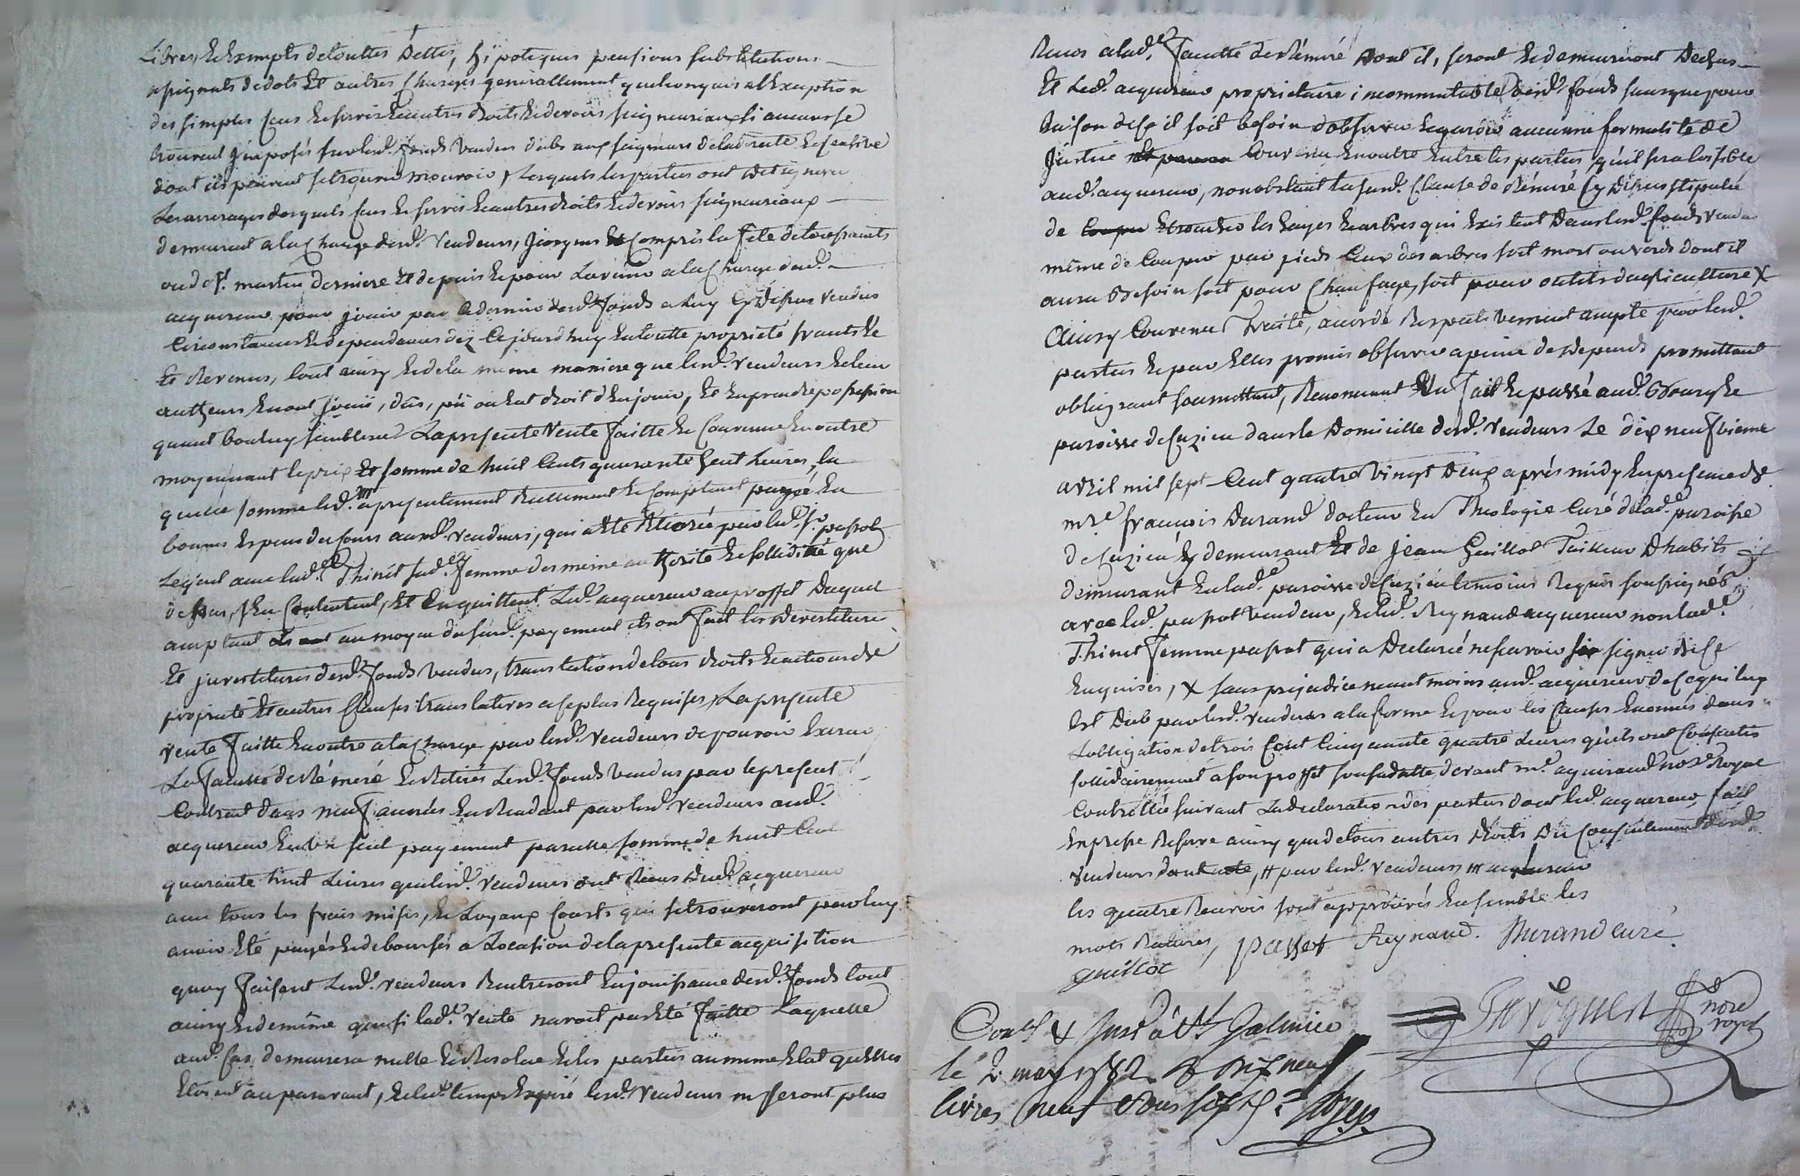 Libres, & Exempts de touttes Dettes, hÿpoteques pensions substitutions
assignats de dots Et autres Charges generallement quelconques a l'Exception
des simples Cens & servis & autres droits & devoirs seigneuriaux si aucuns se
trouvent jmposés sur lesd. fonds vendus dubs aux seigneurs de la directe & censive
dont ils peuvent se trouver mouvoir, lesquels les parties ont
Les arrerages desquels Cens & servis & autres droits & devoirs seigneuriaux
demeurent a la Charge desd. vendeurs, jusques & Compris la fete de toussaints
ou de st. martin derniere Et depuis & pour Lavenir a la Charge dud.
acquereur pour jouir par desd. fonds a luy Cy Dessus vendus
Circonstances & dependances dez Cejourdhuy En toutte proprieté fruits &
Et Revenus, tout ainsy & de la meme maniere que lesd. vendeurs & leur
autheurs En ont jouis, dûs, pû ou En droit d'En jouir, Et En prendre possession
quant bon luy semblera La presente Vente faitte & Convenue En outre
moyennant le prix Et somme de huit Cents quarante huit Livres, la
quelle somme led. a presentement Reellement & Comptant payée En
bonnes Especes de Cours auxd. vendeurs, qui a Eté Retirée par led. sr. passot
Le quel avec lad. Thinet sad. femme de meme authorité & sollidité que
dessus, s'En Contentent, Et En quittent Led. acquereur au proffit Duquel
acceptant au moyen du susd. payement ils ont fait les Devestitures
Et jnvestitures desd. fonds vendus, translation de tous droits & actions de
proprieté & autres Clauses translatives a ce plus Requises, La presente
vente faitte En outre a la Charge par lesd. vendeurs de pouvoir Exercer
La faculté de Réméré & Retirer Lesd. fonds vendus par le present
Contrat dans neuf années En Rendant par lesd. vendeurs aud.
acquereur En un seul payement pareille somme de huit Cent
quarante huit Livres que lesd. vendeurs ont Reçus Dud. acquereur
avec tous les frais mises, & Loyaux Cousts qui se trouveront par luy
avoir Eté payés & debourses a L'ocasion de la presente acquisition
quoy faisant Lesd. vendeurs Rentreront En jouissance desd. fonds tout
ainsy & de même que si lad. vente n'avoit pas Eté faitte Laquelle
aud. Cas demeurera nulle & Resolue & les parties au meme Etat quelles
Etoient auparavant, & led. temps Expiré lesd. Vendeurs ne seront plus
Recus a lad. faculté de Réméré Dont ils, seront & demeureront Dechus
Et Led. acquereur proprietaire incommutable desd. fonds sans que pour
Raison de ce il soit besoin d'observer & garder aucune formalité de
justice Convenu En outre Entre les parties qu'il sera loisible
aud. acquereur, nonobstant la susd. Clause de Réméré Cy Dessus stipulée
de les hayes & arbres qui Existent Dans lesd. fonds vendus
même de Couper par pieds Ceux des arbres soit mort ou verds dont il
aura Besoin soit pour Chauffage, soit pour outils d'agriculture X
Ainsy Convenu Traité, acordé Respectivement accepté par lesd.
parties & par Elles promis observer a peine de depends promettant
obligeant soumettant, Renoncant &a fait & passé aud. Bourg &
paroisse de Cuzieu dans le Domicille desd. vendeurs Le dix neufvieme
avril mil sept Cent quatre vingt Deux après midy En presence de
mre. françois Durand docteur En Theologie Curé de lad. paroisse
de Cuzieu y demeurant Et de Jean Guillot Tailleur D'habits
demeurant En lad. paroisse de Cuzieu temoins Requis soussignés
avec led. passot vendeur, & led. Reynaud acquereur non lad.
Thinet femme passot qui a Declaré ne savoir signer De Ce
Enquises, X sans prejudice neantmoins aud. acquereur de Ce qui luy
Est Dub par lesd. vendeurs a la forme & pour les Causes Enoncés dans
L'obligation de trois Cent Cinquante quatre Livres qu'ils ont Consentis
sollidairement a son proffit devant me. notre. Royal
Controllée suivant La declaration des parties dont led. acquereur fait
Expresse Reserve ainsy que de tous autres Droits Du Consentement desd.
vendeurs dont acte, # par lesd. vendeurs
les quatre Renvois sont approuvés Ensemble les
mots Raturés, passot Reynaud. Durand curé.
guillot
notre
royal
Conllé & Insé à St Galmier
le 2 may 1782 R dix neuf
livres neuf sous six d.